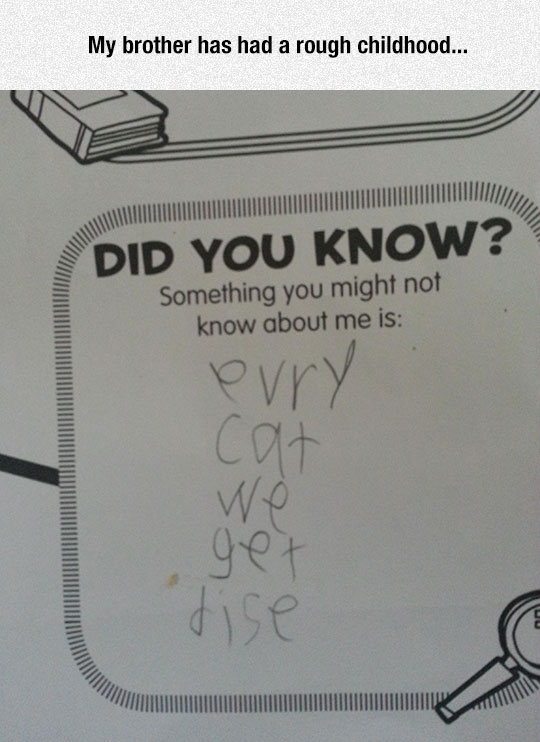 My brother has had a rough childhood...
DID YOU KNOW?
Something you might not
know about me is:
evry
cat
we
get
dise